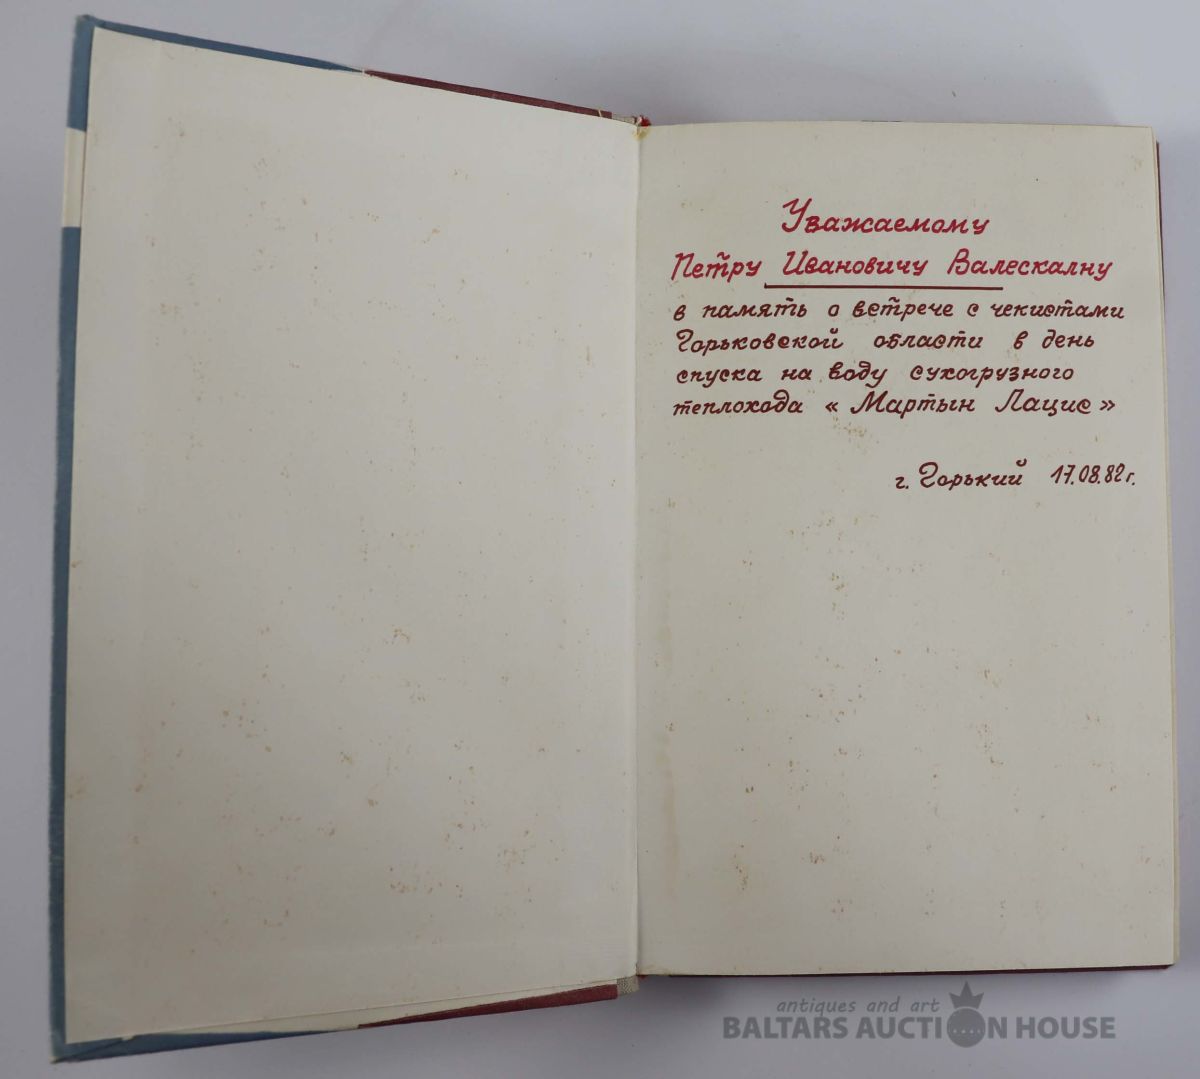 Уважаемому
Петру Ивановичу Валескалну
в память о встрече с чекистами
Горьковской области в день
спуска на воду сухогрузного
теплохода « Мартын Лацис »
г. Горький 17.08.82 г.
antiques and art
BALTARS AUCTION HOUSE